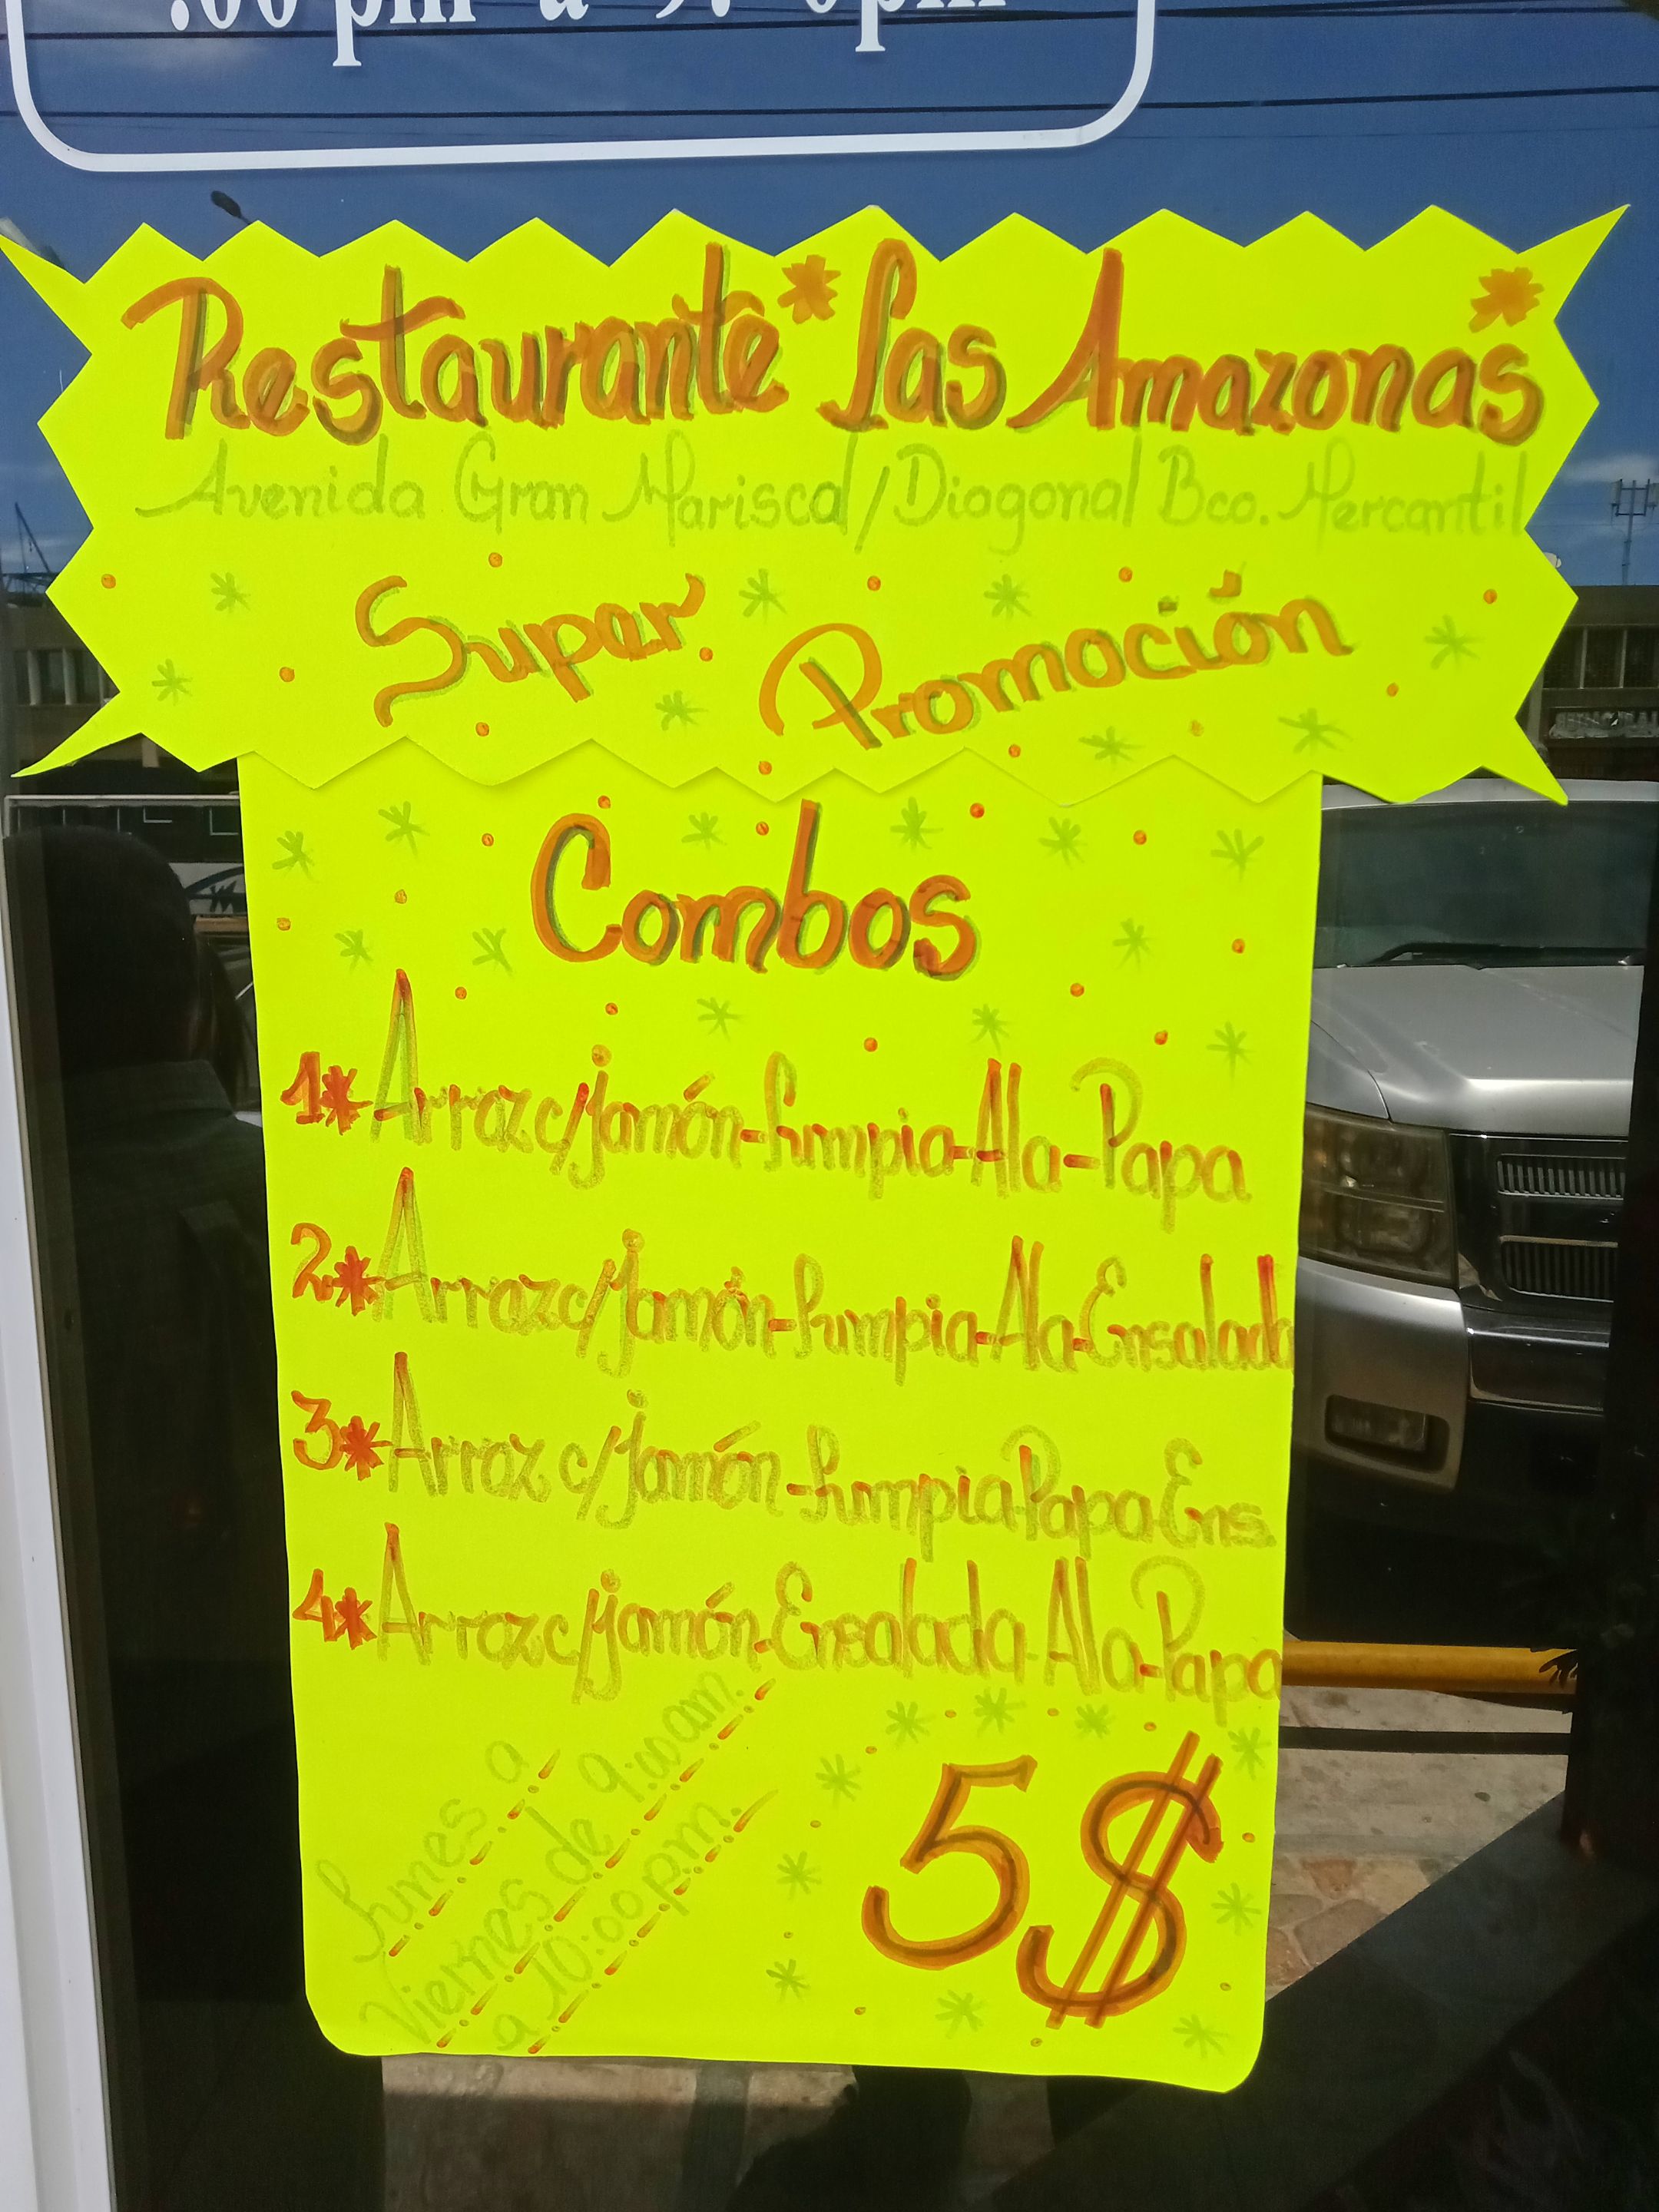 :00 pm a 9: 0pm
Restaurante Las Amazonas
Avenida Gran Mariscal/Diagonal Bco. Mercantil
Super Promoción
Combos
1* Arroz c/jamón-Lumpia-Ala-Papa
2* Arroz c/jamón-Lumpia-Ala-Ensalada
3* Arroz c/jamón-Lumpia Papa Ens.
4* Arroz c/jamón-Ensalada Ala-Papa
Lunes a
Viernes de 9:00 am.
a 10:00 p.m.
5$